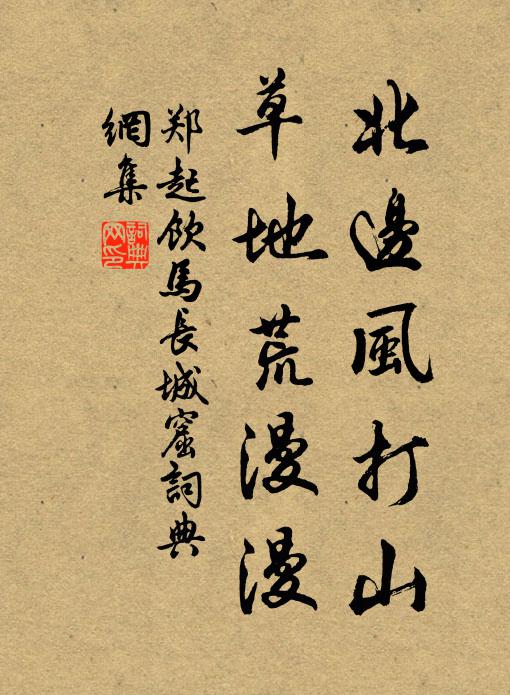 北邊風打山
草地荒漫漫
郑起飲馬長城窟詞典
網集
詞典
网印